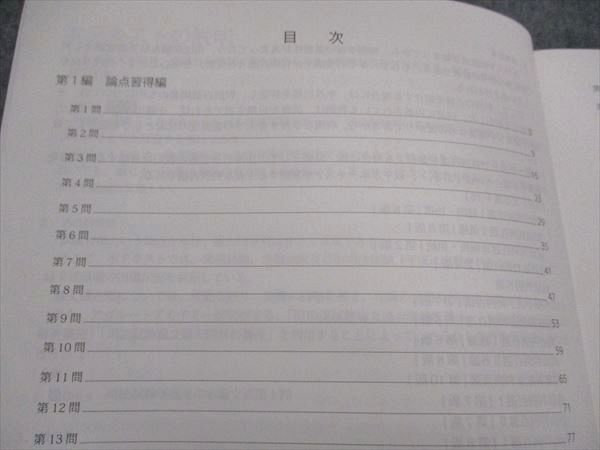 目 次
第1編 論点習得編
第1問 3
第2問 9
第3問 16
第4問 23
第5問 29
第6問 35
第7問 41
第8問 47
第9問 53
第10問 59
第11問 65
第12問 71
第13問 77